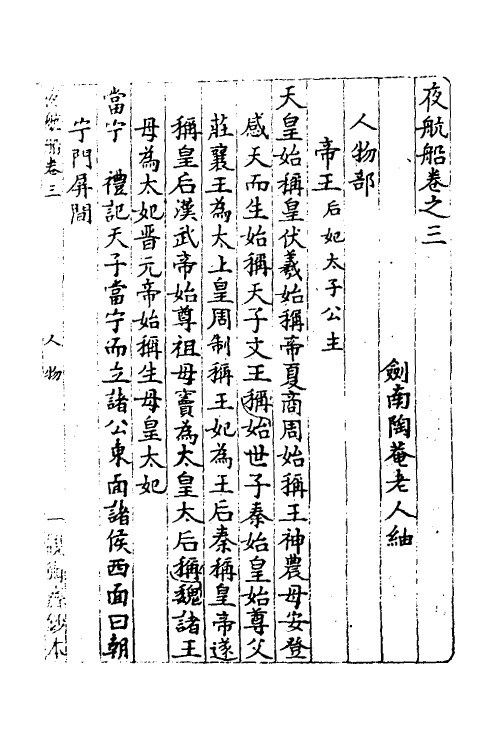 夜航船卷之三
劍南陶菴老人紬
人物部
帝王 后妃太子公主
天皇始稱皇伏羲始稱帝夏商周始稱王神農母安登
感天而生始稱天子文王稱始世子秦始皇始尊父
莊襄王為太上皇周制稱王妃為王后秦稱皇帝遂
稱皇后漢武帝始尊祖母竇為太皇太后稱魏諸王
母為太妃晉元帝始稱生母皇太妃
當宁 禮記天子當宁而立諸公東面諸侯西面曰朝
宁門屏間
夜航船卷三 人物 一 觀術齋鈔本